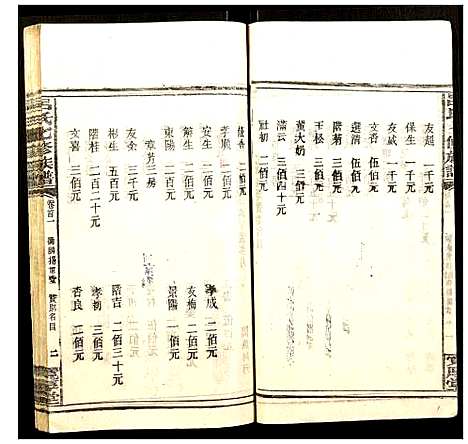 友超 一千元
保生 一千元
友咸 一千元
文香 伍佰元
選清 伍佰元
階菊 伍佰元
王松 三佰元
董大奶 三佰元
滿云 三佰元
社初 二佰元
二佰元
孝順 二佰元
安生 二佰元
解生 二佰元
東陽 二百元
章芳三房
友金 三千元
彬生 五百元
階桂 二百二十元
文喜 三佰元
孝成 二佰元
友梅 二佰元
景陽 二佰元
階吉 二佰三十元
孝初 三佰元
香良 三佰元
呂氏七修族譜
卷首一
贊助名目
二